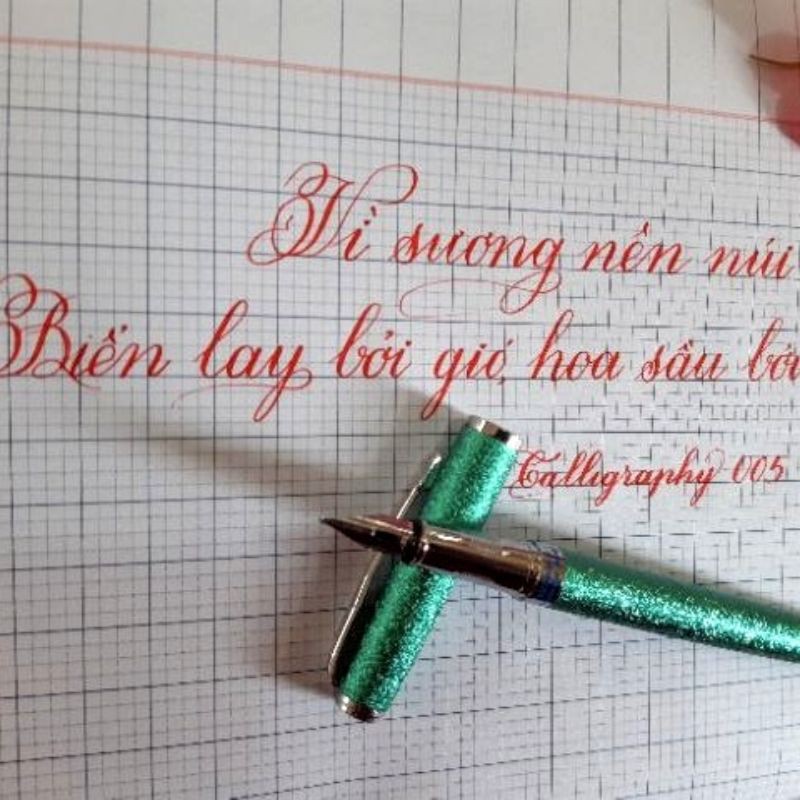 Vì sương nên núi
Biển lay bởi gió, hoa sầu bởi
Calligraphy 005